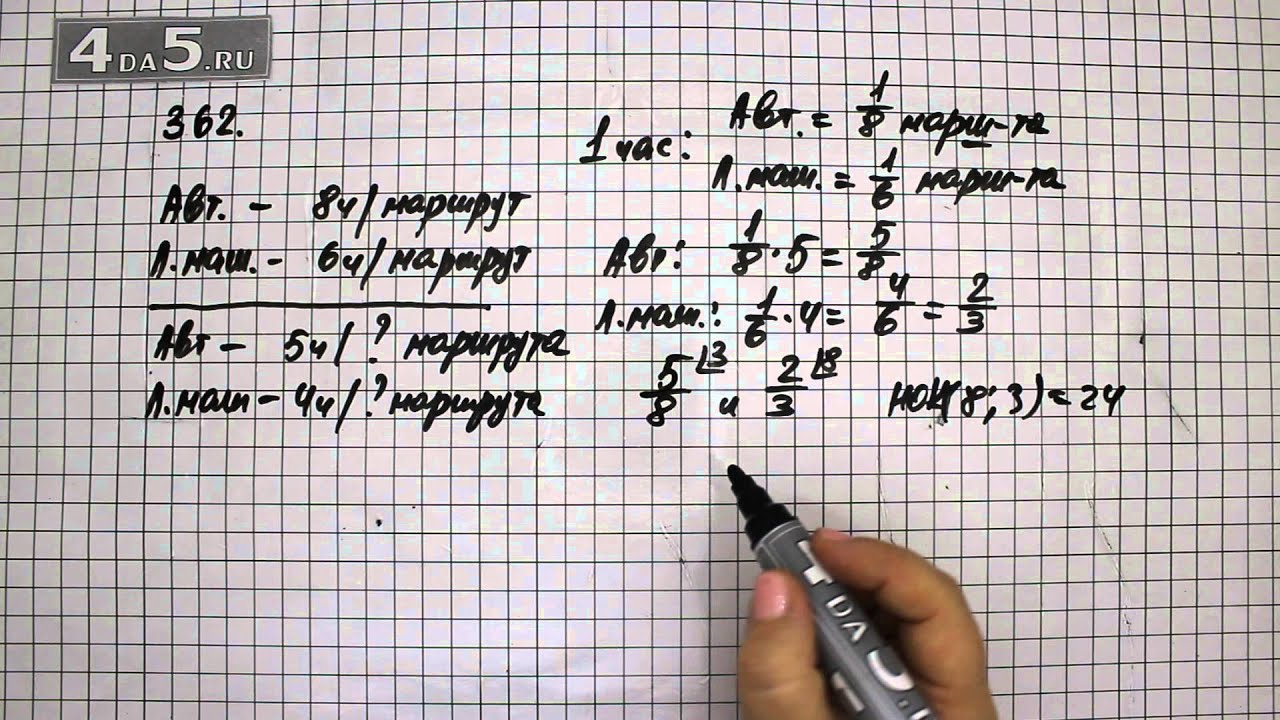 4DA5.RU
362.
Авт. - 8ч/маршрут
Л.маш. - 6ч/маршрут
Авт - 5ч/? маршрута
Л.маш - 4ч/? маршрута
1 час: Авт. = 1/8 марш-та
Л.маш. = 1/6 марш-та
Авт: 1/8 · 5 = 5/8
Л.маш.: 1/6 · 4 = 4/6 = 2/3
5/8 ⌋3 и 2/3 ⌋8 НОК(8; 3) = 24
4DA5